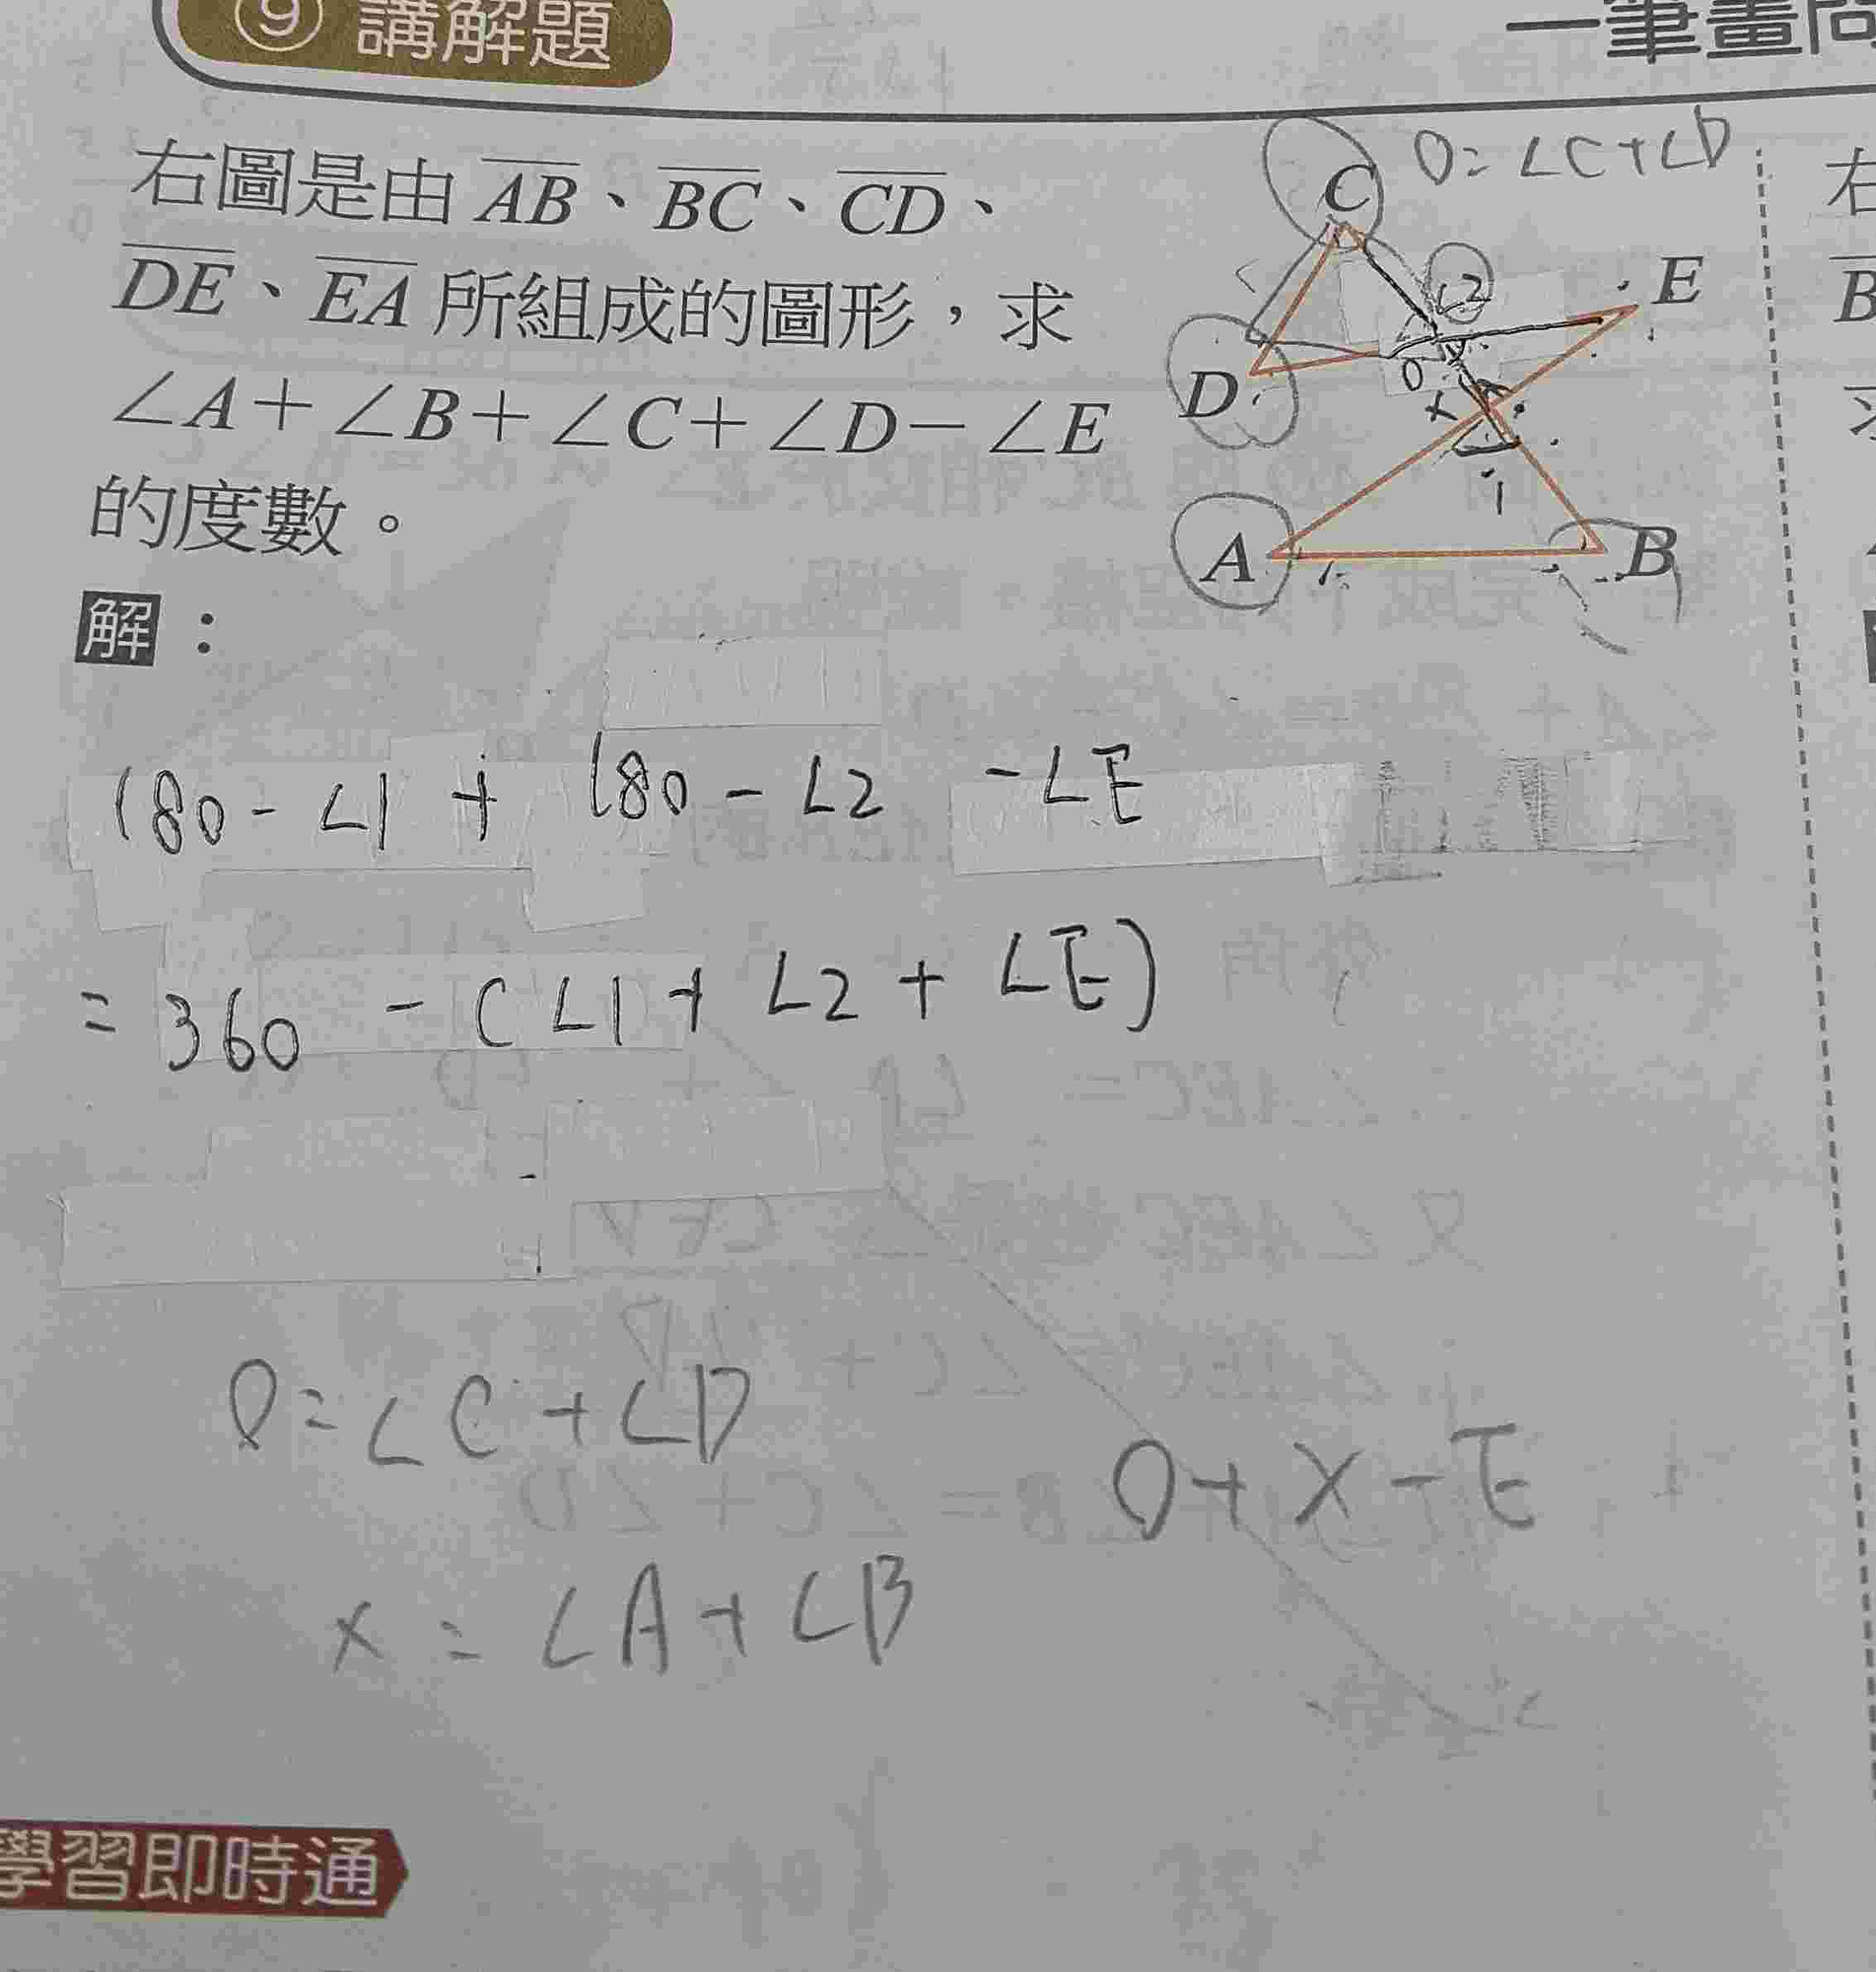 ⑨ 講解題
一筆畫問
右圖是由 AB、BC、CD、
DE、EA 所組成的圖形,求
∠A+∠B+∠C+∠D-∠E
的度數。
O=∠C+∠D
C
∠2
E
D
O
x
1
A
B
右
B
解:
180-∠1 + 180-∠2 -∠E
=360 -(∠1+∠2+∠E)
O=∠C+∠D
O+x-E
x=∠A+∠B
學習即時通